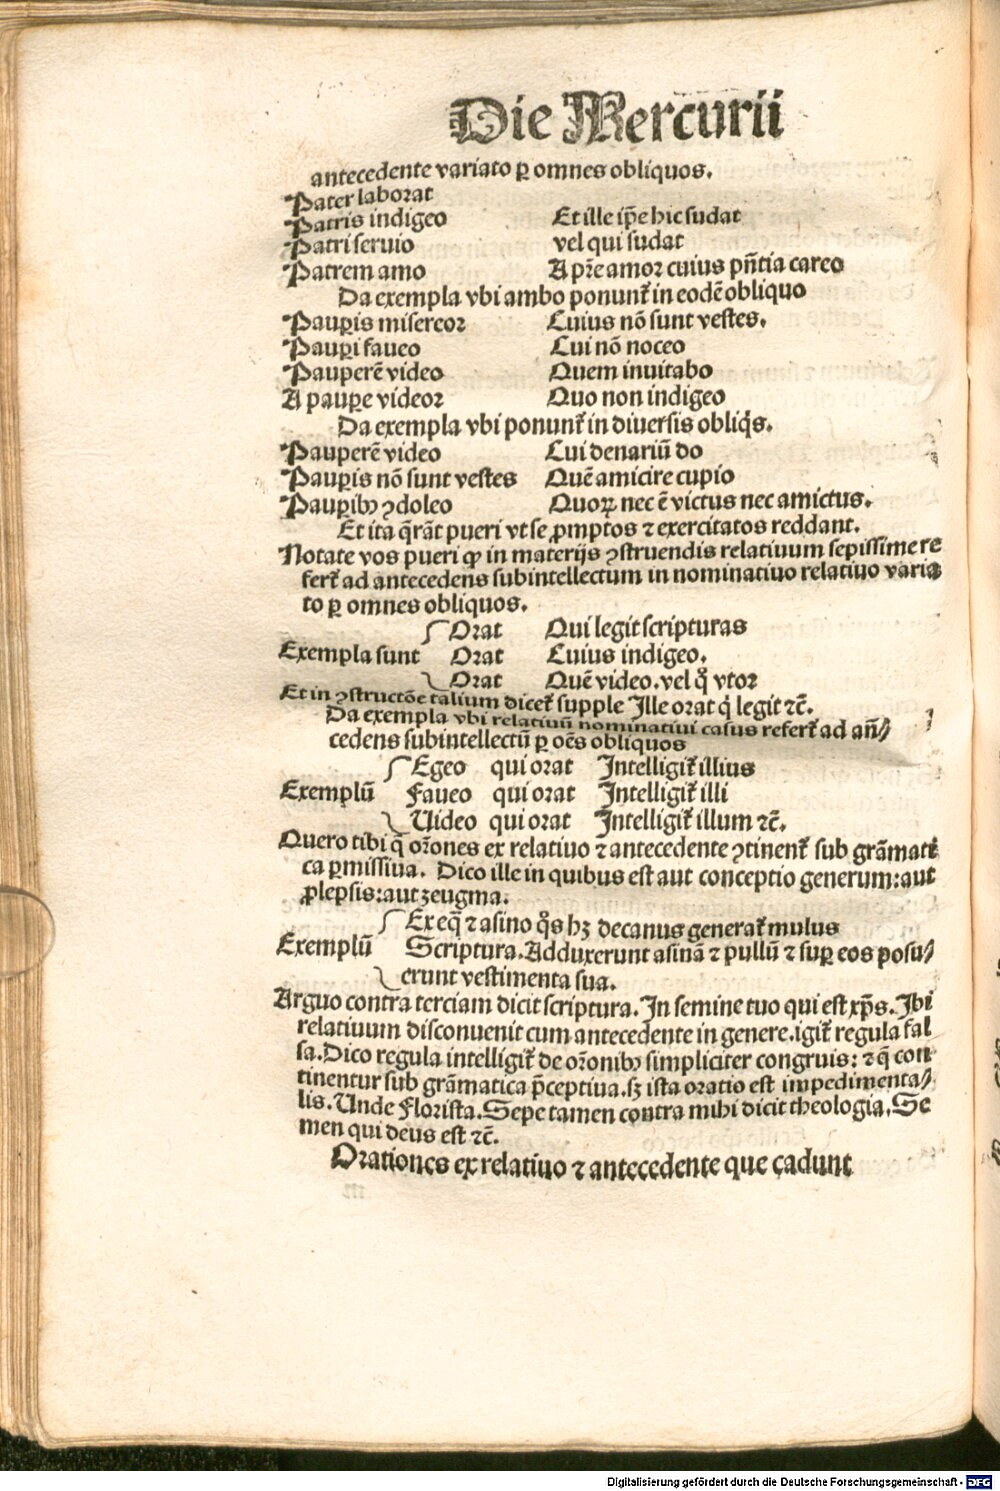 Die Mercurii
antecedente variato ꝑ omnes obliquos.
Pater laborat
Patris indigeo Et ille ip̄e hic sudat
Patri seruio vel qui sudat
Patrem amo A pr̄e amoꝛ cuius pn̄tia careo
Da exempla vbi ambo ponunt᷑ in eodē obliquo
Pauꝑis misereoꝛ Cuius nō sunt vestes.
Pauꝑi faueo Cui nō noceo
Pauperē video Quem inuitabo
A pauꝑe videoꝛ Quo non indigeo
Da exempla vbi ponunt᷑ in diuersis obliq̇s.
Pauperē video Cui denariū do
Pauꝑis nō sunt vestes Quē amicire cupio
Pauꝑibꝰ ꝯdoleo Quoꝝ nec ē victus nec amictus.
Et ita q̄rāt pueri vt se ꝓmptos ⁊ exercitatos reddant.
Notate vos pueri ꝙ in materijs ꝯstruendis relatiuum sepissime re
fert᷑ ad antecedens subintellectum in nominatiuo relatiuo varia
to ꝑ omnes obliquos.
Oꝛat Qui legit scripturas
Exempla sunt Oꝛat Cuius indigeo.
Oꝛat Quē video. vel q̊ vtoꝛ
Et in ꝯstructōe talium dicet᷑ supple Ille oꝛat q̇ legit ⁊c̄.
Da exempla vbi relatiuū nominatiui casus refert᷑ ad an̄⸗
cedens subintellectū ꝑ oēs obliquos
Egeo qui oꝛat Intelligit᷑ illius
Exemplū Faueo qui oꝛat Intelligit᷑ illi
Uideo qui oꝛat Intelligit᷑ illum ⁊c̄.
Quero tibi q̄ oꝛ̄ones ex relatiuo ⁊ antecedente ꝯtinent᷑ sub grāmati
ca ꝑmissiua. Dico ille in quibus est aut conceptio generum: aut
ꝓlepsis: aut zeugma.
Ex eq̄ ⁊ asino q̊s hꝫ decanus generat᷑ mulus
Exemplū Scriptura. Adduxerunt asinā ⁊ pullū ⁊ suꝑ eos posu⸗
erunt vestimenta sua.
Arguo contra terciam dicit scriptura. In semine tuo qui est xp̄s. Ibi
relatiuum disconuenit cum antecedente in genere. igit᷑ regula fal
sa. Dico regula intelligit᷑ de oꝛ̄onibꝰ simpliciter congruis: ⁊ q̄ con
tinentur sub grāmatica p̄ceptiua. sꝫ ista oratio est impedimenta⸗
lis. Unde Florista. Sepe tamen contra mihi dicit theologia. Se
men qui deus est ⁊c̄.
Orationes ex relatiuo ⁊ antecedente que cadunt
Digitalisierung gefördert durch die Deutsche Forschungsgemeinschaft - DFG